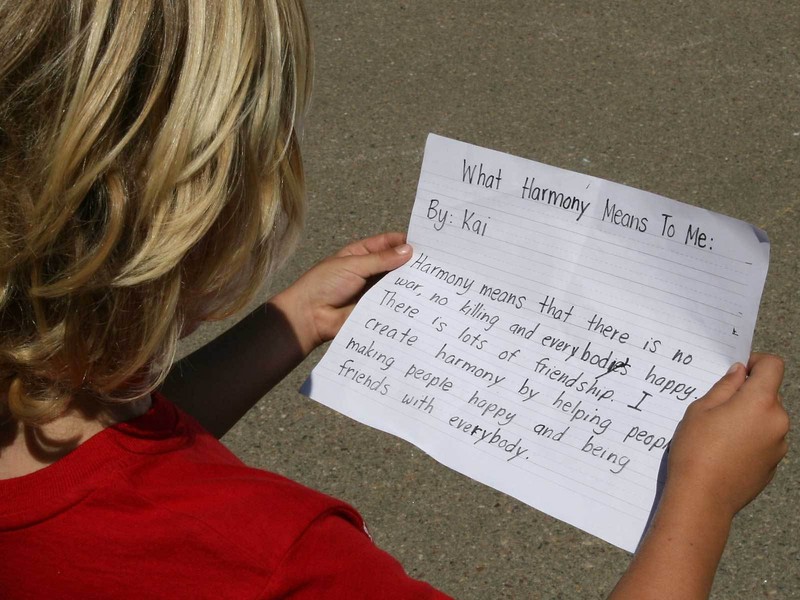 What Harmony Means To Me:
By: Kai
Harmony means that there is no
war, no killing and everybodys happy.
There is lots of friendship. I
create harmony by helping peopl
making people happy and being
friends with everybody.